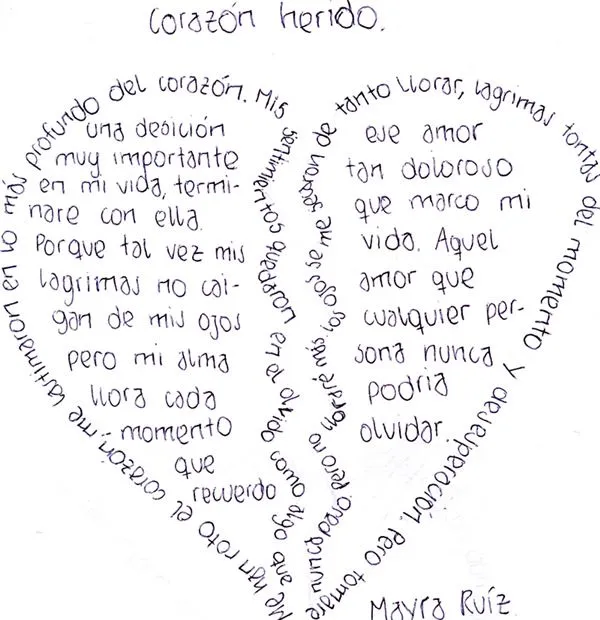 Corazón herido.
Me han roto el corazón, me lastimaron en lo más profundo del corazón. Mis
sentimientos quedaron en la olvido como algo que
nunca pero no lloraré más, ojos se me secaron de
tanto llorar, lagrimas tontas del momento y desesperación. Pero tomare
una desición
muy importante
en mi vida, termi-
nare con ella.
Porque tal vez mis
lagrimas no cai-
gan de mis ojos
pero mi alma
llora cada
momento
que
recuerdo
ese amor
tan doloroso
que marco mi
vida. Aquel
amor que
cualquier per-
sona nunca
podria
olvidar.
Mayra Ruíz